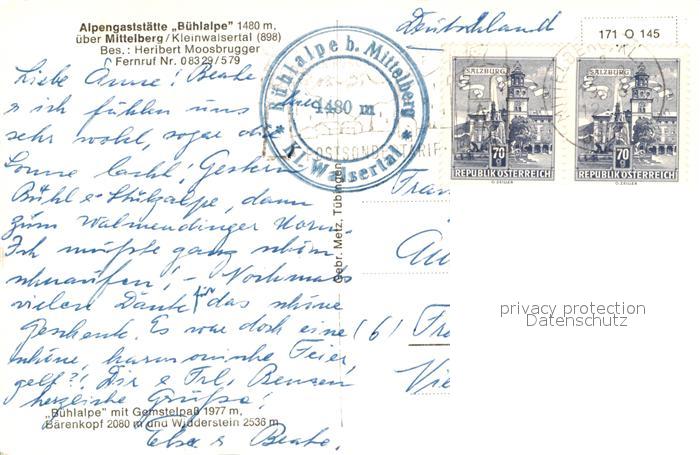 Alpengaststätte „Bühlalpe" 1480 m,
über Mittelberg / Kleinwalsertal (898)
Bes.: Heribert Moosbrugger
Fernruf Nr. 08329/579
Deutschland
171 O 145
Bühlalpe b. Mittelberg
1480 m
Kl. Walsertal
SALZBURG
70
REPUBLIK ÖSTERREICH
SALZBURG
70
REPUBLIK ÖSTERREICH
Liebe Änne! Beate
& ich fühlen uns hier
sehr wohl, sogar die
Sonne lacht! Gestern
Bühl & Stutzalpe, dann
zum Walmendinger Horn.
Ich mußte ganz schön
schnaufen! – Nochmals
vielen Dank für das schöne
Geschenk. Es war doch eine
schöne, harmonische Feier,
gelt?! Dir & Frl.
herzliche Grüße!
& Beate.
Gebr. Metz, Tübingen
(6)
privacy protection
Datenschutz
„Bühlalpe" mit Gemstelpaß 1977 m,
Bärenkopf 2080 m und Widderstein 2536 m